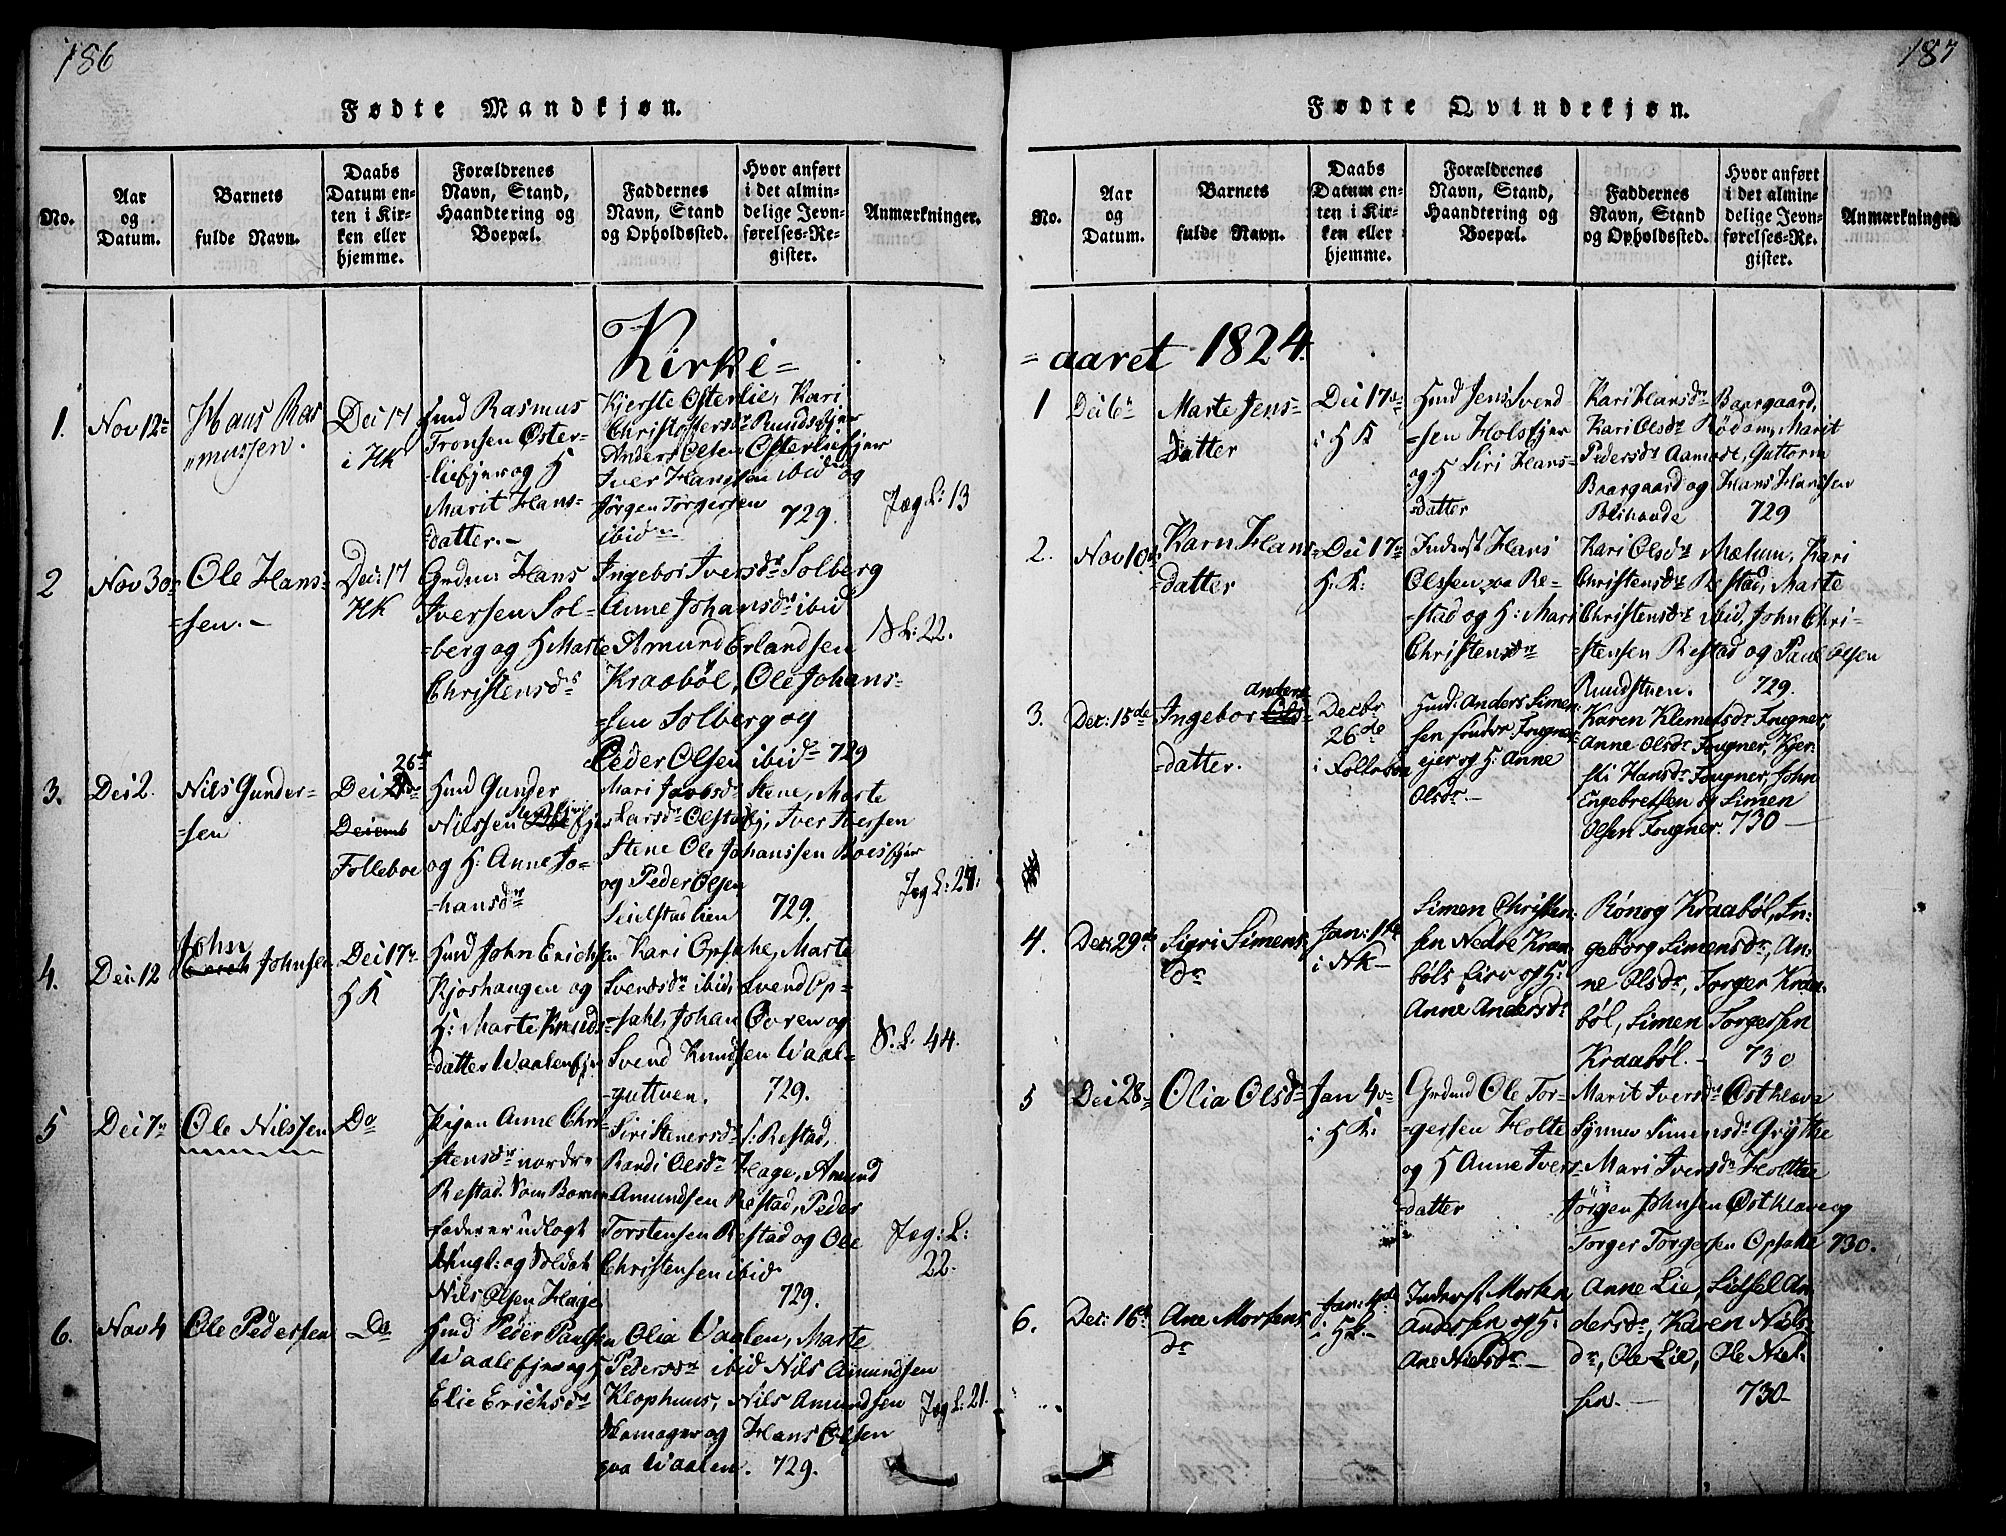 186
Fødte Mandkjøn.
No.
Aar
og
Datum.
Barnets
fulde Navn.
Daabs
Datum en-
ten i Kir-
ken eller
hjemme.
Forældrenes
Navn, Stand,
Haandtering og
Boepæl.
Faddernes
Navn, Stand
og Opholdssted.
Hvor anført
i det almin-
delige Jevn-
førelses-Re-
gister.
Anmærkninger.
Kirke=
1.
Nov 12te
Hans Ras
mussen.
Dec 17
i HK
Huusmd Rasmus
Tronsen Øster-
lie ejer og H
Marit Hans-
datter.-
Kjerste Østerlie, Kari
Christophersdr Rundstejer
Anders Olsen Østerlie ejer
Iver Hansen ibid og
Jørgen Torgersen
ibid
729.
Jæg L: 13
2
Nov 30
Ole Hans-
sen.-
Dec: 17
HK
Grdm: Hans
Iversen Sol-
berg og H Marte
Christensdr
Ingebor Iversdr Solberg
Anne Johansdr ibid
Amund Erlandsen
Kraabøl, Ole Johans-
sen Solberg og
Peder Olsen ibid 729
S L: 22.
3.
Dec 2
Nils Gunder-
sen
26de
Dec
Folleboe
Huusmd Gunder
Nilssen
og H. Anne Jo-
hansdr
Mari Jacobsdr Stene, Marte
Larsdr Olstad ej, Iver Iversen
Stene Ole Johanssen Boes ejer
og Peder Olsen
Seielstad lien 729.
Jæg L: 27.
4.
Dec 12
John
Johnsen
Dec 17
HK
Huusmd John Erichsen
Kjoshaugen og
H: Marte Knuds-
datter Waalen ejer
Kari Opsahl, Marte
Svendsdr ibid, Svend Op-
sahl, Johan Øvren og
Svend Knudsen Waal-
guttuen. 729.
S. L. 44.
5
Dec 7
Ole Nilssen
Do
Pigen Anne Chri-
stensdr nordre
Restad. Som Barne-
fader er udlagt
Ungk: og Soldat
Nils Olsen Hage
Siri Stenersdr S: Restad,
Randi Olsdr Hage, Amund
Amundsen Restad, Peder
Torstensen Restad og Ole
Christensen ibid
729.
Jæg: L:
22.
6.
Nov 4
Ole Pedersen
Do
Huusmd Peder Paulsen
Waale ejer og H
Elie Erichsdr
Olia Vaalen, Marte
Pedersdr ibid Nils Amundsen
Klophuus, Nils Amundsen
Skomager og Hans Olsen
paa Waalen. 729.
Jæg L: 21.
187
Fødte Qvindekjøn.
No.
Aar
og
Datum.
Barnets
fulde Navn.
Daabs
Datum en-
ten i Kir-
ken eller
hjemme.
Forældrenes
Navn, Stand,
Haandtering og
Boepæl.
Faddernes
Navn, Stand
og Opholdssted.
Hvor anført
i det almin-
delige Jevn-
førelses-Re-
gister.
Anmærkninger.
=aaret 1824.
1
Dec 6
Marte Jens-
datter
Dec 17
i HK
Huusmd Jens Svend-
sen Hols ejer
og H Siri Hans-
datter
Kari Hansdr Baargaard,
Kari Olsdr Rødom, Marit
Pedersdr Aamodt, Guttorm
Baargaard og Hans Hanssen
729
2.
Nov 10
Karn Hans-
datter
Dec 17
H. K:
Inderst Hans
Olssen paa Re-
stad og H: Mari
Christensdr
Kari Olsdr Mæhum, Kari
Christensdr Restad, Marte
Christensdr ibid, John Chri-
stensen Restad og Paul Olsen
Rundstuen. 729.
3.
Dec: 15de
Ingebor Anders
datter.
Decbr
26de
i Folleboe
Huusmd: Anders Simen
sen søndre Fougner-
ejer og H: Anne
Olsdr.-
Karen Klemetsdr Fougner,
Anne Olsdr Fougner, Kjer-
sti Hansdr Fougner, John
Engebretsen og Simen
Olsen Fougner. 730
4.
Dec: 29de
Sigri Simens
dr
Jan: 1ste
i NK-
Simen Christen-
sen Nedre Kraa-
bøls Eiro og H:
Anne Andersdr
Rønog Kraabøl, In-
geborg Simensdr, An-
ne Olsdr, Torger Kraa-
bøl, Simen Torgersen
Kraabøl.- 730
5
Dec 28
Olia Olsdr
Jan 4
i HK:
Grdmd Ole Tor-
gersen Holte
og H Anne Ivers-
datter
Marit Iversdr Østhlava
Synnev Simensdr Grythe
Mari Iversdr Holthe
Jørgen Johnsen Østhlave og
Torger Torgersen Opsahl 730.
6.
Dec: 16de
Ane Mortens
dr
Jan: 4de
i HK.-
Inderst Morten
Andersen og H:
Ane Nielsdr-
Anne Lie, Lisbel An-
dersdr, Karen Niels-
dr, Ole Lie, Ole Niel-
sen.- 730